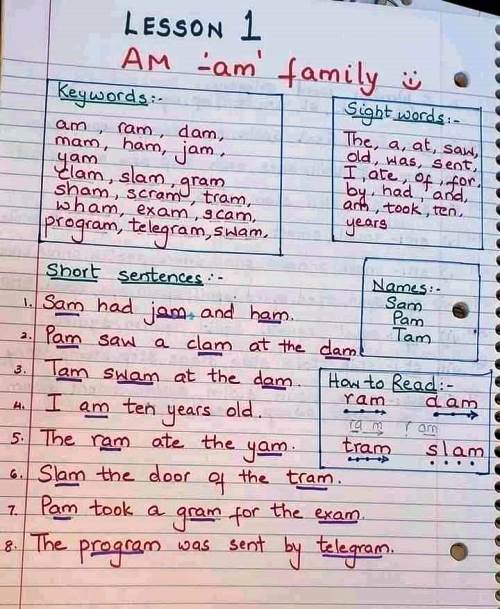 LESSON 1
AM '-am' family
Keywords:-
am, ram, dam,
mam, ham, jam,
yam
clam, slam, gram
sham, scram, tram,
wham, exam, scam,
program, telegram, swam,
Sight words:-
The, a, at, saw,
old, was, sent,
I, ate, of, for,
by, had, and,
am, took, ten,
years
Names:-
Sam
Pam
Tam
Short sentences:-
1. Sam had jam and ham.
2. Pam saw a clam at the dam
3. Tam swam at the dam.
4. I am ten years old.
5. The ram ate the yam.
6. Slam the door of the tram.
7. Pam took a gram for the exam.
8. The program was sent by telegram.
How to Read:-
ram dam
ram ram
tram slam